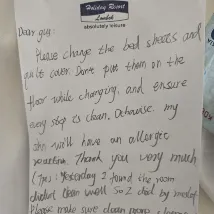 Holiday Resort
Lombok
absolutely leisure
Dear guy:
Please change the bed sheets and
quilt cover. Don't put them on the
floor while changing, and ensure
every step is clean. Otherwise. my
skin will have an allergic
reaction. Thank you very much
(ps: Yesterday I found the room
didn't clean well so I did by myself
Please make sure clean